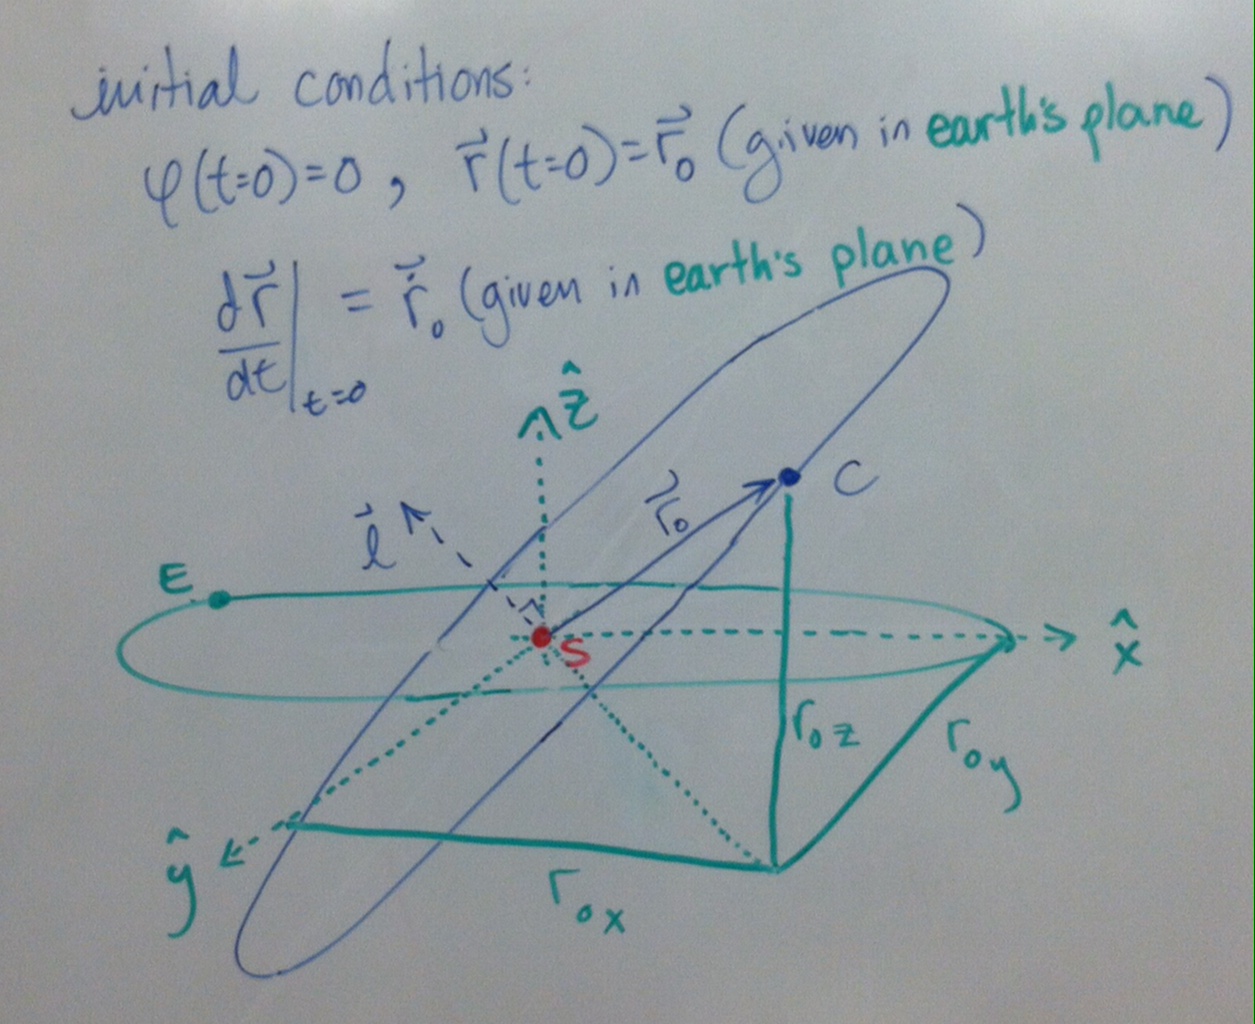 initial conditions:
φ(t=0)=0, r⃗(t=0)=r⃗₀ (given in earth's plane)
dr⃗/dt|t=0 = r⃗̇₀ (given in earth's plane)
ẑ
l⃗
r⃗₀
C
E
S
x̂
r₀z
r₀y
ŷ
r₀x